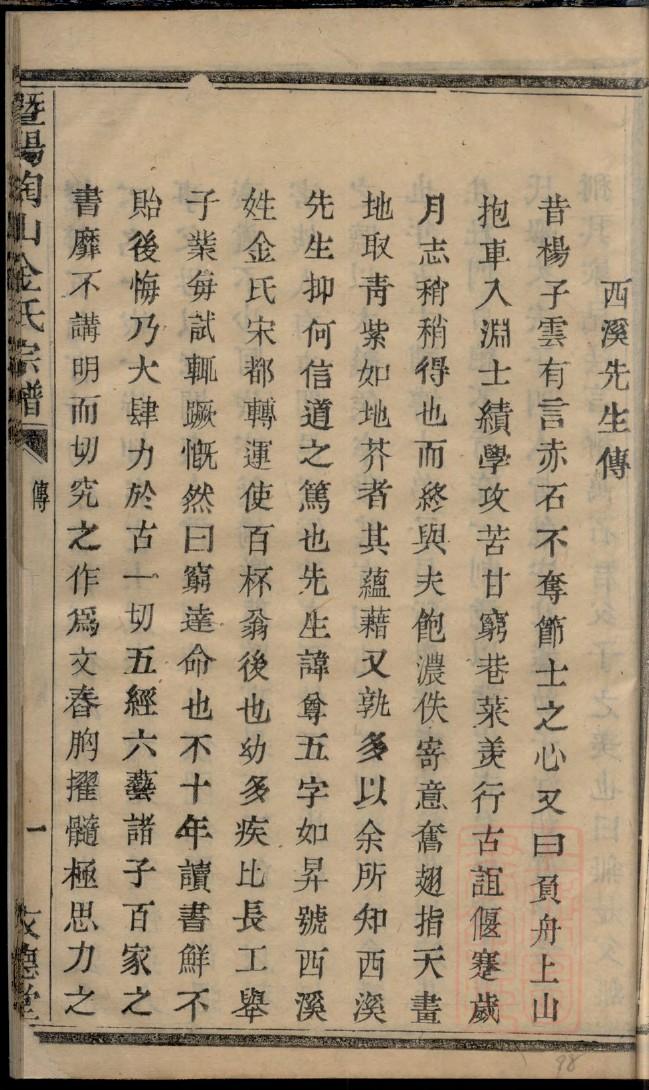 西溪先生傳
昔楊子雲有言赤石不奪節士之心又曰負舟上山
抱車入淵士績學攻苦甘窮巷菜羮行古誼偃蹇歲
月志稍稍得也而終與夫飽濃佚寄意奮翅指天畫
地取靑紫如地芥者其蘊藉又孰多以余所知西溪
先生抑何信道之篤也先生諱尊五字如昇號西溪
姓金氏宋都轉運使百杯翁後也幼多疾比長工舉
子業每試輒蹶慨然曰窮達命也不十年讀書鮮不
貽後悔乃大肆力於古一切五經六藝諸子百家之
書靡不講明而切究之作爲文舂胸擢髓極思力之
暨陽陶山金氏宗譜
傳
一
文德堂
98